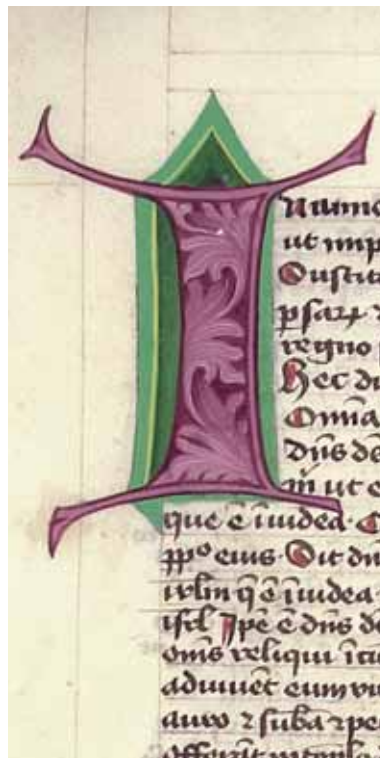 I
N anno
ut imp
Suscita
psarz
regno
Hec di
Omīa
dn̄s de
m̄ ut e
que ē iudea
ppo eius Sit dn̄
irlm q̄ ē iudea
isrl Ipē ē dn̄s de
om̄s reliqui
adiuuēt eum
auro ⁊ suba ⁊ pe
offerūt